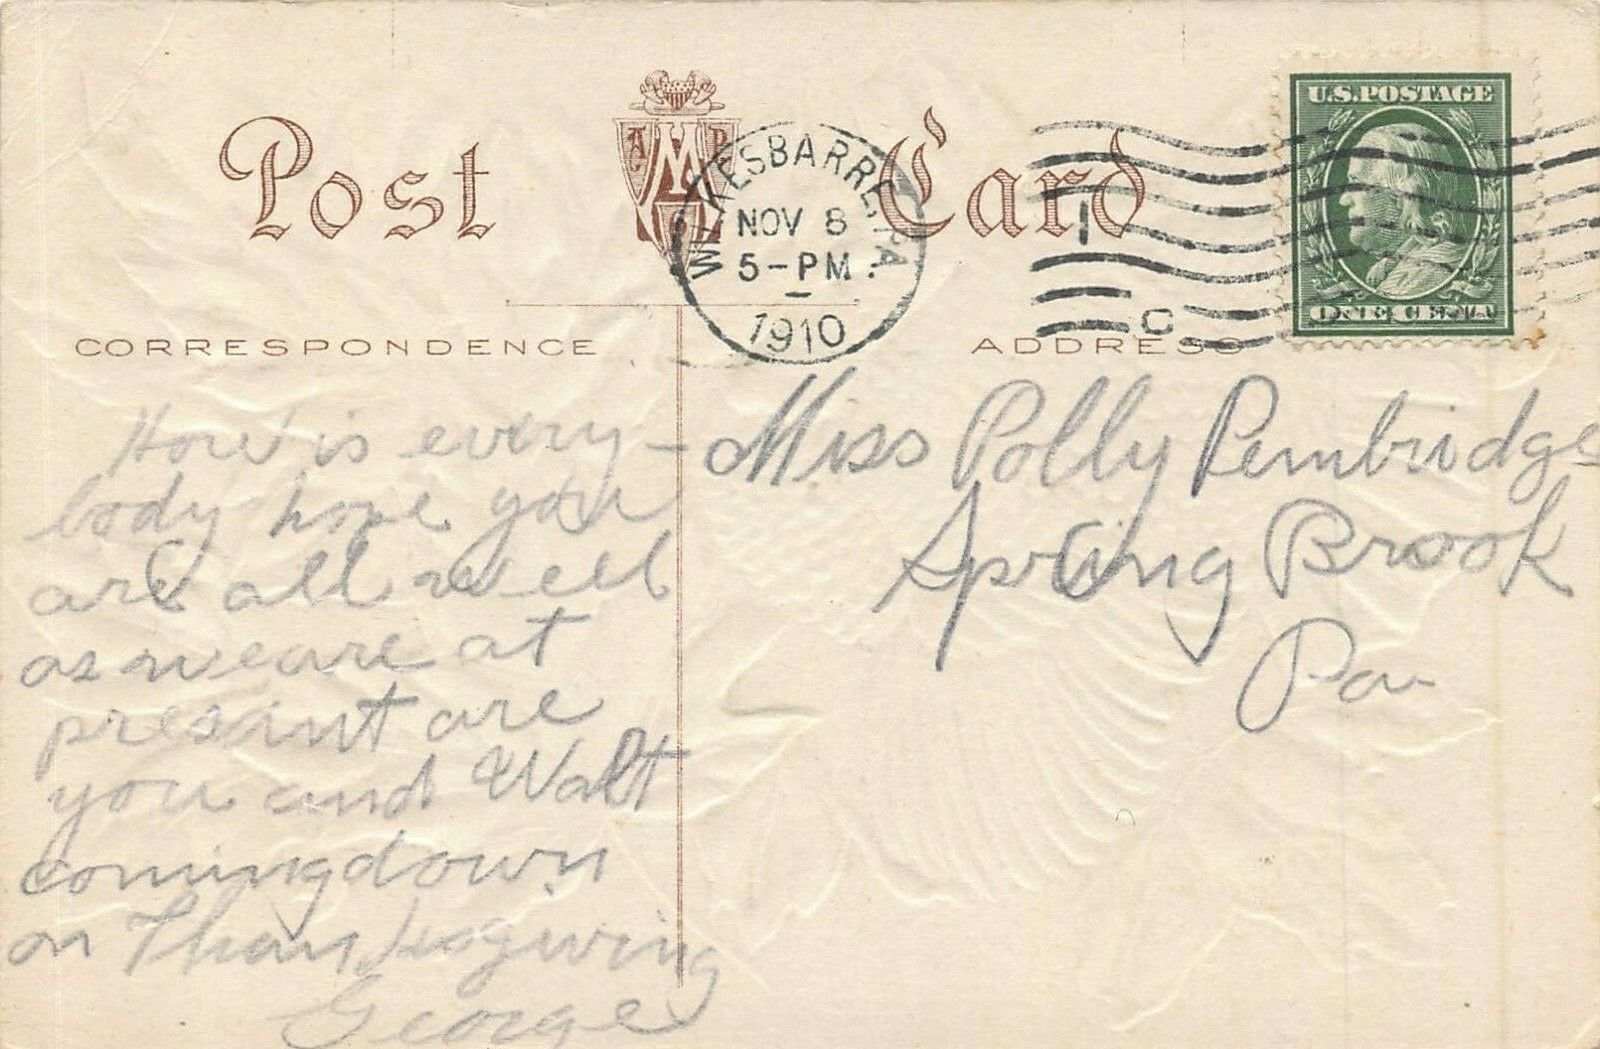 Post Card
A M P C
WILKESBARRE, PA.
NOV 8
5-PM
1910
1
C
U.S.POSTAGE
ONE CENT
CORRESPONDENCE
ADDRESS
How is every-
body hope you
are all well
as we are at
present are
you and Walt
coming down
on Thanksgiving
George
Miss Polly Pembridge
Spring Brook
Pa